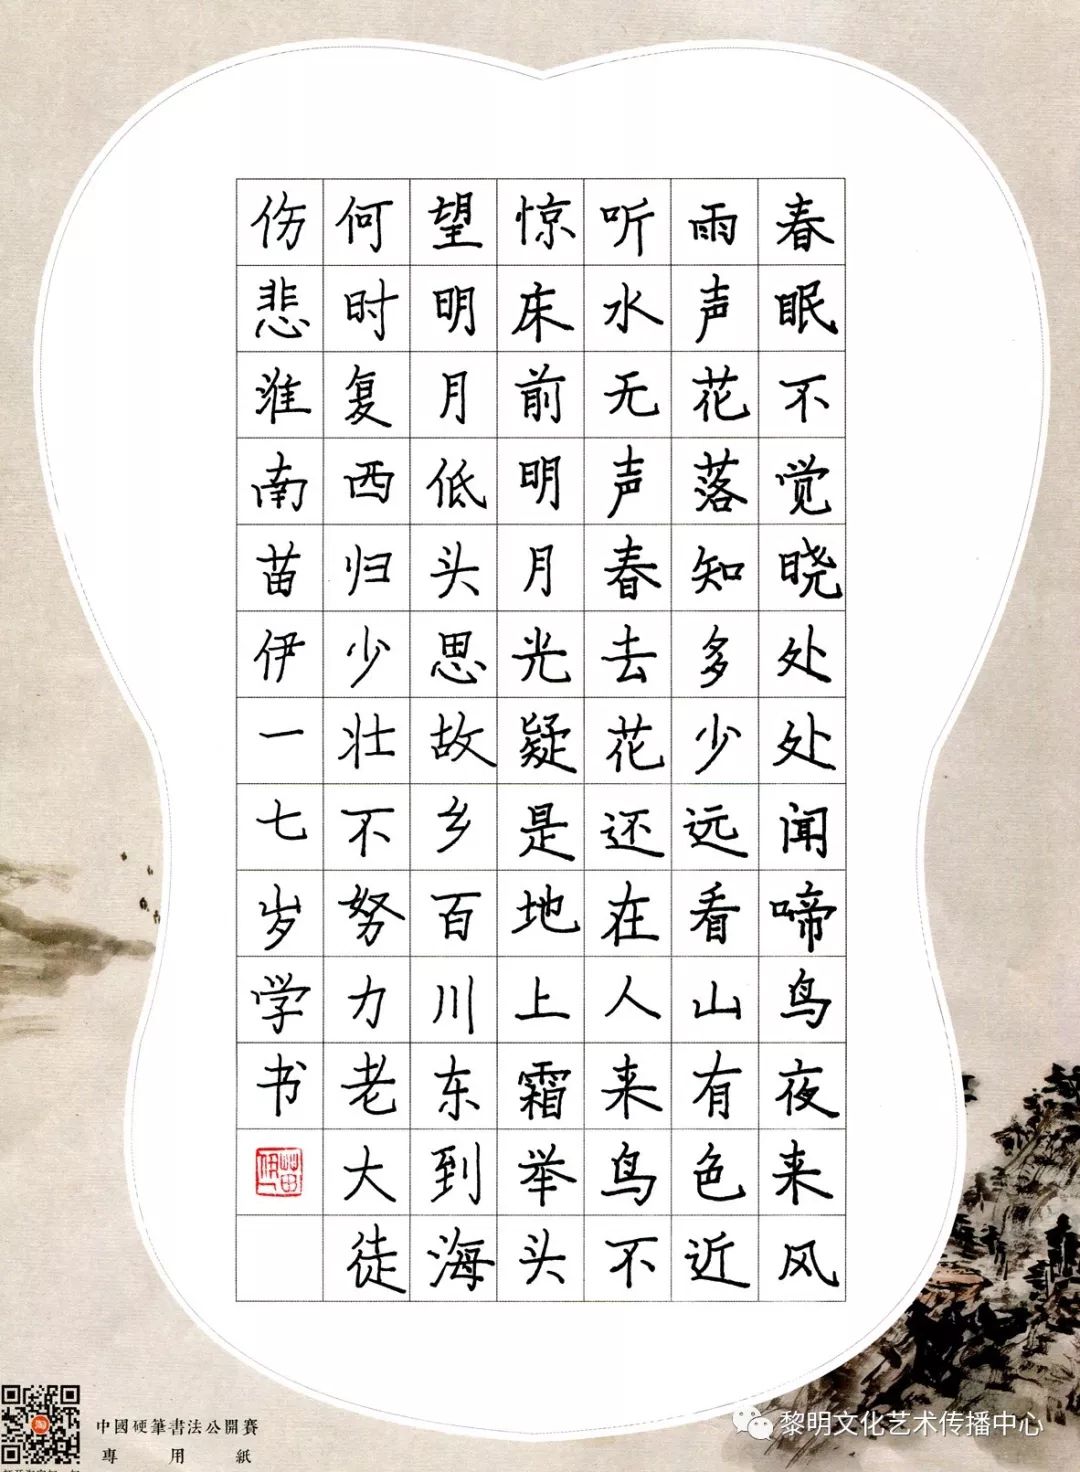 春眠不觉晓处处闻啼鸟夜来风
雨声花落知多少远看山有色近
听水无声春去花还在人来鸟不
惊床前明月光疑是地上霜举头
望明月低头思故乡百川东到海
何时复西归少壮不努力老大徒
伤悲淮南苗伊一七岁学书
苗伊一
中國硬筆書法公開賽
專用紙
黎明文化艺术传播中心